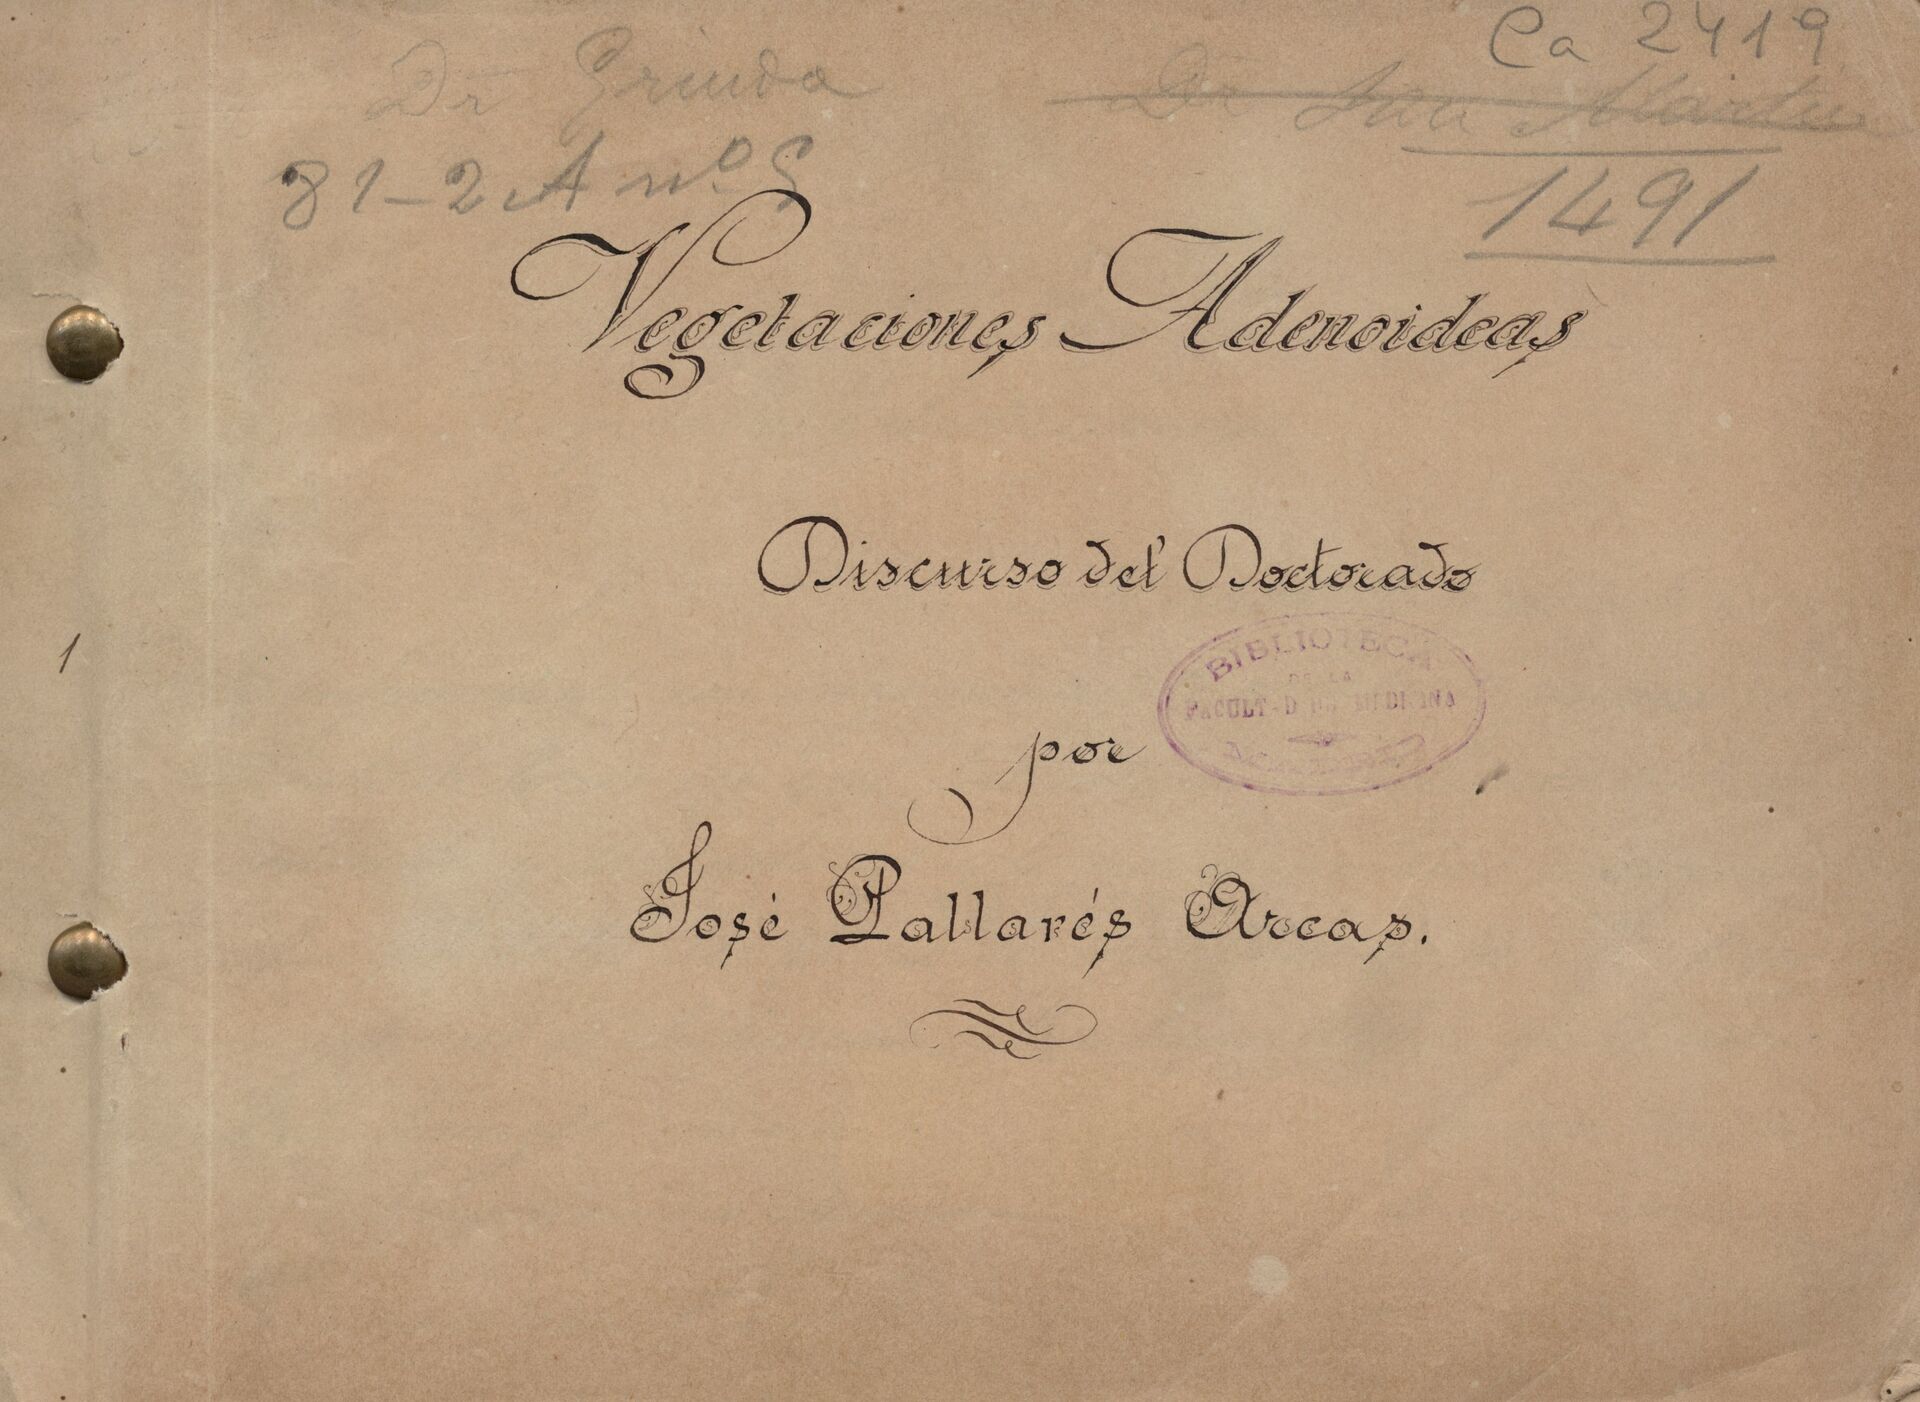 Ca 2419
Dr Grinda
Dr San Martin
81-2 A nº 5
1491
Vegetaciones Adenoideas
Discurso del Doctorado
BIBLIOTECA
DE LA
FACULTAD DE MEDICINA
1
por
José Pallarés Arcas.